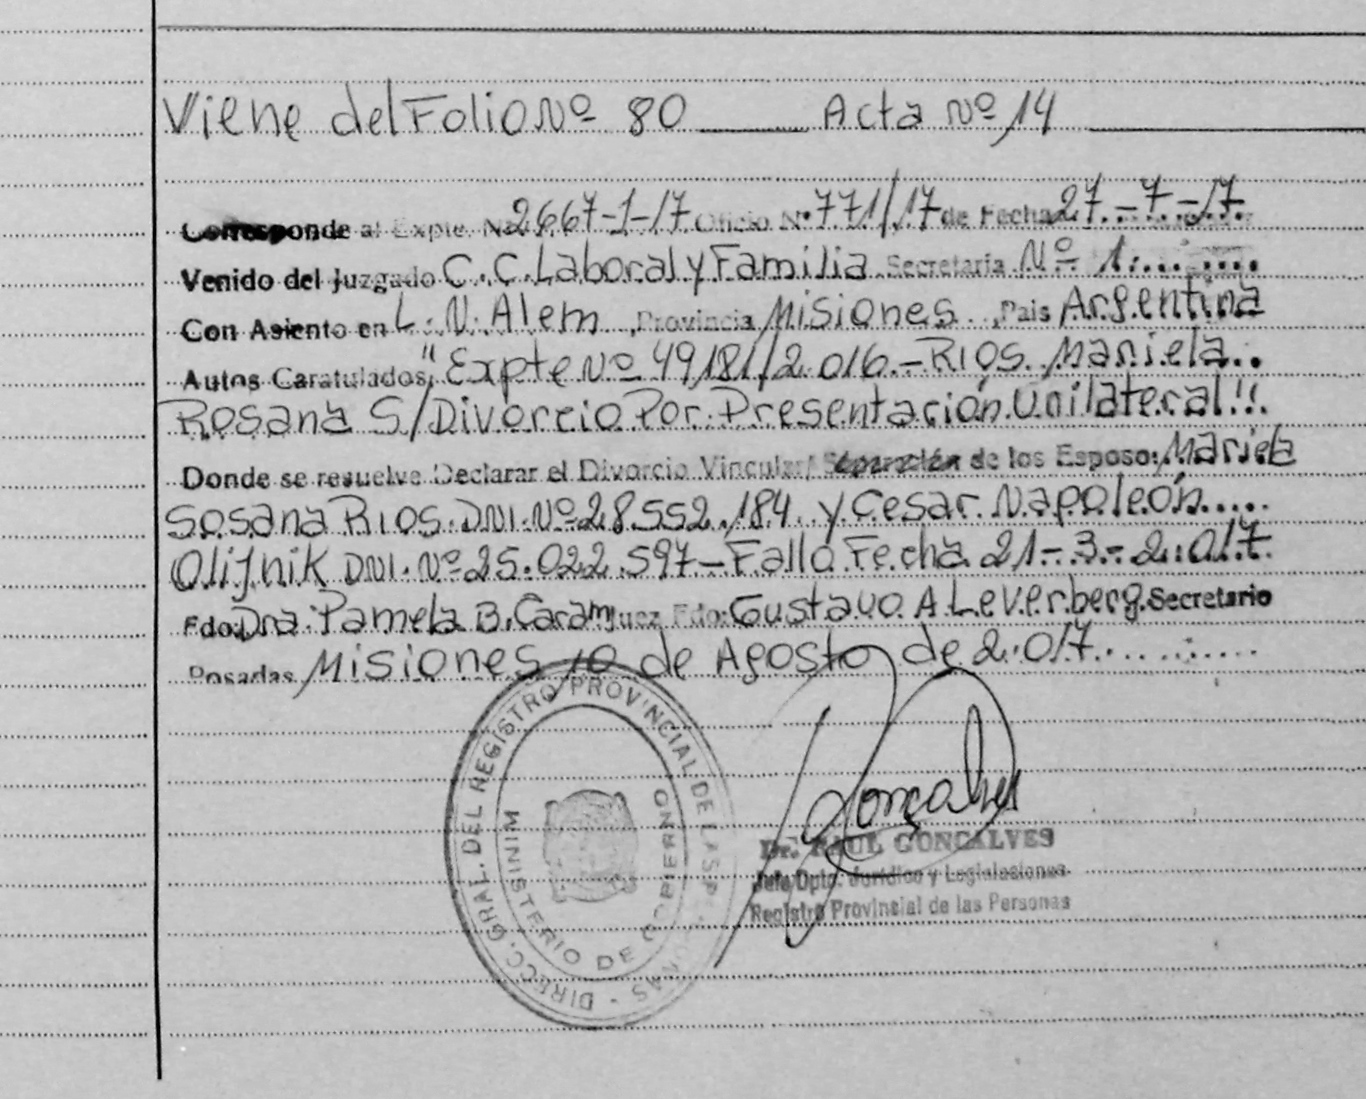 Viene del Folio Nº 80 ____ Acta Nº 14
Corresponde al Expte. Nº 2667-1-17 Oficio Nº 771/17 de Fecha 27.-7-17.
Venido del Juzgado C.C. Laboral y Familia Secretaria Nº 1
Con Asiento en L.N. Alem, Provincia Misiones, Pais Argentina
Autos Caratulados, "Expte Nº 49181/2.016.- RIOS. Mariela..
Rosana S/Divorcio Por. Presentación. Unilateral!!.
Donde se resuelve Declarar el Divorcio Vincular/ Separación de los Esposo: Mariela
Sosana RIOS. DNI. Nº 28.552.184 y Cesar. Napoleón.....
Olijnik DNI. Nº 25.022.597- Fallo Fecha 21-.3-.2.017.
Fdo: Dra: Pamela B. Fdo: Gustavo. A. Leverberg. Secretario
Posadas, Misiones 10 de Agosto de 2.017.
DIRECC. GRAL. DEL REGISTRO PROVINCIAL DE LAS PERSONAS
MINISTERIO DE GOBIERNO
Goncalves
Dr. RAUL GONCALVES
Jefe Dpto. Jurídico y Legislaciones
Registro Provincial de las Personas